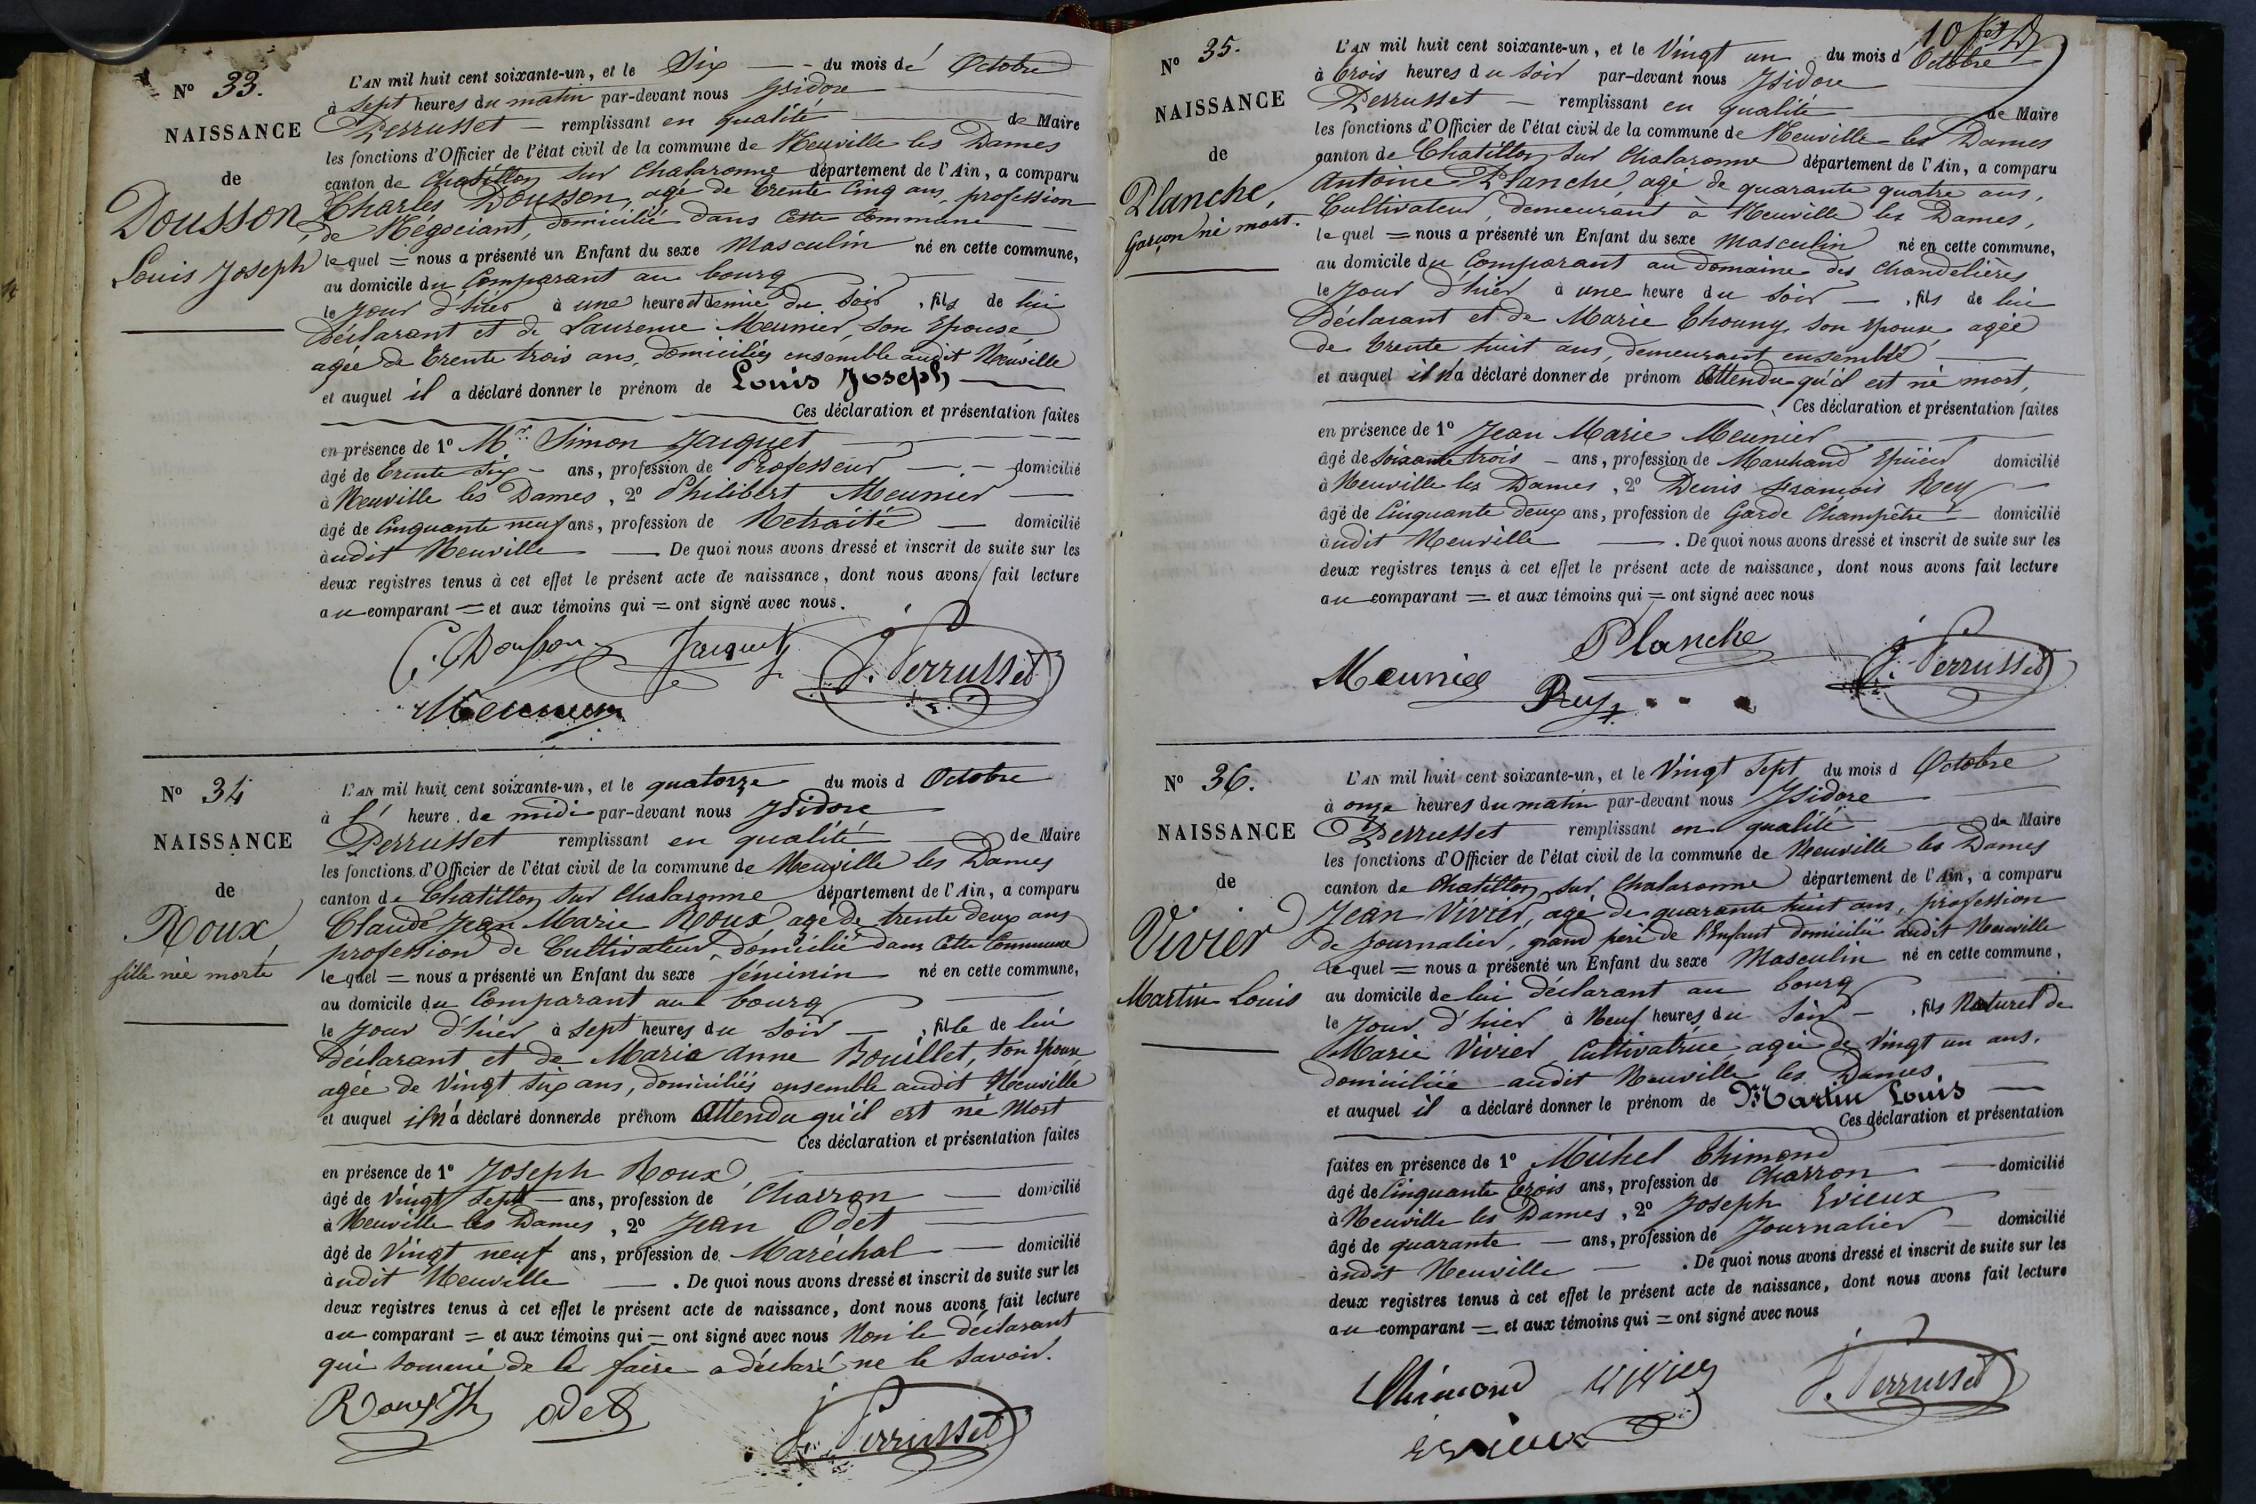 N° 33.
NAISSANCE
de
Dousson,
Louis Joseph
L'AN mil huit cent soixante-un, et le Six du mois d Octobre
à Sept heures du matin par-devant nous Ysidore
Perrusset remplissant en qualité de Maire
les fonctions d'Officier de l'état civil de la commune de Neuville les Dames
canton de Chatillon sur Chalaronne département de l'Ain, a comparu
Charles Dousson, agé de trente Cinq ans, profession
de Négociant, domicilié dans Cette Commune
lequel = nous a présenté un Enfant du sexe Masculin né en cette commune,
au domicile du Comparant au bourg
le Jour d'hier à une heure et demie du Soir, fils de lui
Déclarant et de Laurence Meunier, son Epouse,
agée de trente trois ans, domiciliés ensemble audit Neuville
et auquel il a déclaré donner le prénom de Louis Joseph
Ces déclaration et présentation faites
en présence de 1° Mr. Simon Jacquet
âgé de trente Six ans, profession de Professeur domicilié
à Neuville les Dames, 2° Philibert Meunier
âgé de Cinquante neuf ans, profession de Retraité domicilié
audit Neuville De quoi nous avons dressé et inscrit de suite sur les
deux registres tenus à cet effet le présent acte de naissance, dont nous avons fait lecture
au comparant = et aux témoins qui = ont signé avec nous.
C. Dousson Jacquet J. Perrusset
Meunier
N° 34
NAISSANCE
de
Roux,
fille née morte
L'AN mil huit cent soixante-un, et le quatorze du mois d Octobre
à l' heure de midi par-devant nous Ysidore
Perrusset remplissant en qualité de Maire
les fonctions d'Officier de l'état civil de la commune de Neuville les Dames
canton de Chatillon sur Chalaronne département de l'Ain, a comparu
Claude Jean Marie Roux, agé de trente deux ans
profession de Cultivateur, domicilié dans Cette Commune
lequel = nous a présenté un Enfant du sexe féminin né en cette commune,
au domicile du Comparant au bourg
le Jour d'hier à sept heures du soir, fille de lui
Déclarant et de Marie Anne Bouillet, son Epouse
agée de vingt six ans, domiciliés ensemble audit Neuville
et auquel il n'a déclaré donner de prénom Attendu qu'il est né Mort
Ces déclaration et présentation faites
en présence de 1° Joseph Roux,
âgé de Vingt Sept ans, profession de Charron domicilié
à Neuville les Dames, 2° Jean Odet
âgé de Vingt neuf ans, profession de Maréchal domicilié
audit Neuville. De quoi nous avons dressé et inscrit de suite sur les
deux registres tenus à cet effet le présent acte de naissance, dont nous avons fait lecture
au comparant = et aux témoins qui = ont signé avec nous Non le déclarant
qui sommé de le faire a déclaré ne le savoir.
Roux Jh Odet J. Perrusset
N° 35.
NAISSANCE
de
Planche,
Garçon né mort.
L'AN mil huit cent soixante-un, et le Vingt un du mois d Octobre
à trois heures du soir par-devant nous Ysidore
Perrusset remplissant en qualité de Maire
les fonctions d'Officier de l'état civil de la commune de Neuville les Dames
canton de Chatillon sur Chalaronne département de l'Ain, a comparu
Antoine Planche, agé de quarante quatre ans,
Cultivateur, demeurant à Neuville les Dames,
lequel = nous a présenté un Enfant du sexe masculin né en cette commune,
au domicile du Comparant au domaine des chandelières
le Jour d'hier à une heure du soir, fils de lui
Déclarant et de Marie Thouny, son Epouse, agée
de trente huit ans, demeurant ensemble
et auquel il n'a déclaré donner de prénom Attendu qu'il est né mort,
Ces déclaration et présentation faites
en présence de 1° Jean Marie Meunier
âgé de Soixante trois ans, profession de Marchand Epicier domicilié
à Neuville les Dames, 2° Denis François Rey
âgé de Cinquante deux ans, profession de Garde Champêtre domicilié
audit Neuville. De quoi nous avons dressé et inscrit de suite sur les
deux registres tenus à cet effet le présent acte de naissance, dont nous avons fait lecture
au comparant = et aux témoins qui = ont signé avec nous
Planche
Meunier Rey J. Perrusset
N° 36.
NAISSANCE
de
Vivier
Martin Louis
L'AN mil huit cent soixante-un, et le Vingt Sept du mois d Octobre
à onze heures du matin par-devant nous Ysidore
Perrusset remplissant en qualité de Maire
les fonctions d'Officier de l'état civil de la commune de Neuville les Dames
canton de Chatillon sur Chalaronne département de l'Ain, a comparu
Jean Vivier, agé de quarante huit ans, profession
de Journalier, grand père de l'Enfant domicilié audit Neuville
lequel = nous a présenté un Enfant du sexe Masculin né en cette commune,
au domicile de lui déclarant au bourg
le Jour d'hier à Neuf heures du Soir, fils Naturel de
Marie Vivier Cultivatrice agée de Vingt un ans.
domiciliée audit Neuville les Dames
et auquel il a déclaré donner le prénom de Martin Louis
Ces déclaration et présentation
faites en présence de 1° Michel Thimond
âgé de Cinquante trois ans, profession de Charron domicilié
à Neuville les Dames, 2° Joseph Evieux
âgé de quarante ans, profession de Journalier domicilié
audit Neuville. De quoi nous avons dressé et inscrit de suite sur les
deux registres tenus à cet effet le présent acte de naissance, dont nous avons fait lecture
au comparant = et aux témoins qui = ont signé avec nous
Thimond Vivier J. Perrusset
Evieux